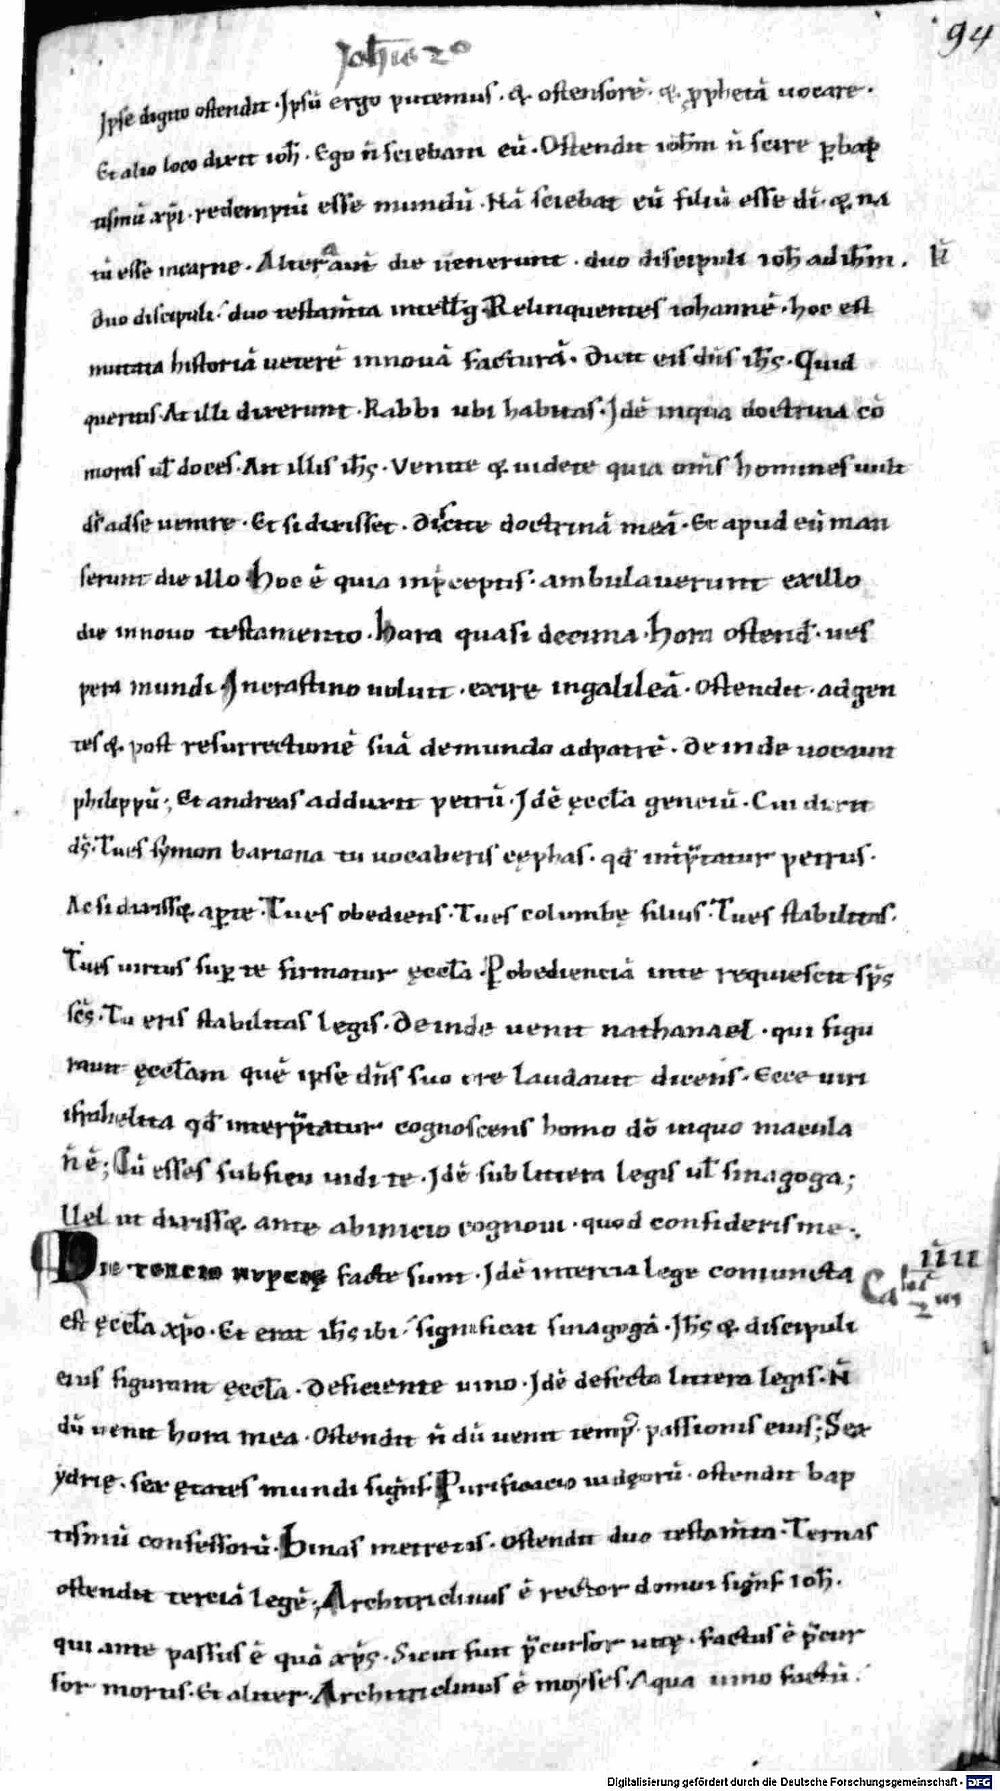 94
Joh̄is 2°
Ipse digito ostendit · Ipsū ergo putemus · & ostensorē · & p̱phetā uocare ·
Et alio loco dicit ioh̄ · Ego n̄ sciebam eū · Ostendit ioh̄m n̄ scire p̱ bap
tismū xp̄i · redemptū esse mundū · Nā sciebat eū filiū esse dī · & na
tū esse in carne · Altera aut̄ die uenerunt · duo discipuli ioh̄ ad ih̄m .
Duo discipuli · duo testam̄ta intell̄g · Relinquentes iohannē · hoc est
mutata historiā ueterē in nouā facturā · Dicit eis dn̄s ih̄s · Quid
queritis · At illi dixerunt · Rabbi ubi habitas · Idē in qua doctrina cō
moras ul̄ doces · Ait illis ih̄s · Venite & uidete quia om̄s homines uult
ds̄ ad se uenire · Et si dixisset · Discite doctrinā meā · Et apud eū man
serunt die illo · hoc ē quia in p̄ceptis · ambulauerunt ex illo
die in nouo testamento · hora quasi decima · hora ostend̄ · ues
pera mundi In crastino uoluit · exire in galileā · Ostendit · ad gen
tes & · post resurrectionē suā de mundo ad patrē · Deinde uocauit
philippū ; Et andreas adduxit petrū · Idē ęccl̄a genciū · Cui dixit
ds̄ · Tu es symon bariona tu uocaberis cęphas · qd̄ int̄p̄tatur petrus ·
Ac si dixiss& ap̱te · Tu es obediens · Tu es columbę filius · Tu es stabilitas ·
Tu es uirtus sup̱ te firmatur ęccl̄a · P̱ obedienciā in te requiescit sp̄s
sc̄s · Tu eris stabilitas legis · Deinde uenit nathanael · qui figu
rauit ęccl̄am quē ipse dn̄s suo ore laudauit dicens · Ecce uiri
israhelita qd̄ interp̄tatur cognoscens homo dō in quo macula
n̄ ē ; Cū esses sub ficu uidi te · Idē sub littera legis ul̄ sinagoga ;
Uel ut dixiss& ante ab inicio cognoui · quod confideris me ·
Die tercio nupcię facte sunt · Idē in tercia lege coniuncta
īīīī
est ęccl̄a xp̄o · Et erat ih̄s ibi · significat sinagogā · Ih̄s & discipuli
eius figurant ęccl̄a · Deficiente uino · Idē defecta littera legis · N̄
dū uenit hora mea · Ostendit n̄ dū uenit temp᷒ passionis eius ; Sex
ydrię · sex ętates mundi sign̄f · Purificacio iudęorū · ostendit bap
tismū confessorū · Binas metretas · Ostendit duo testam̄ta · Ternas
ostendit terciā legē · Architriclinus ē rector domui sign̄f ioh̄ .
qui ante passus ē quā xp̄s · Sicut fuit p̄cursor uitę · factus ē p̄cur
sor mortis · Et aliter · Architriclinus ē moyses · Aqua uino factū .
Digitalisierung gefördert durch die Deutsche Forschungsgemeinschaft - DFG